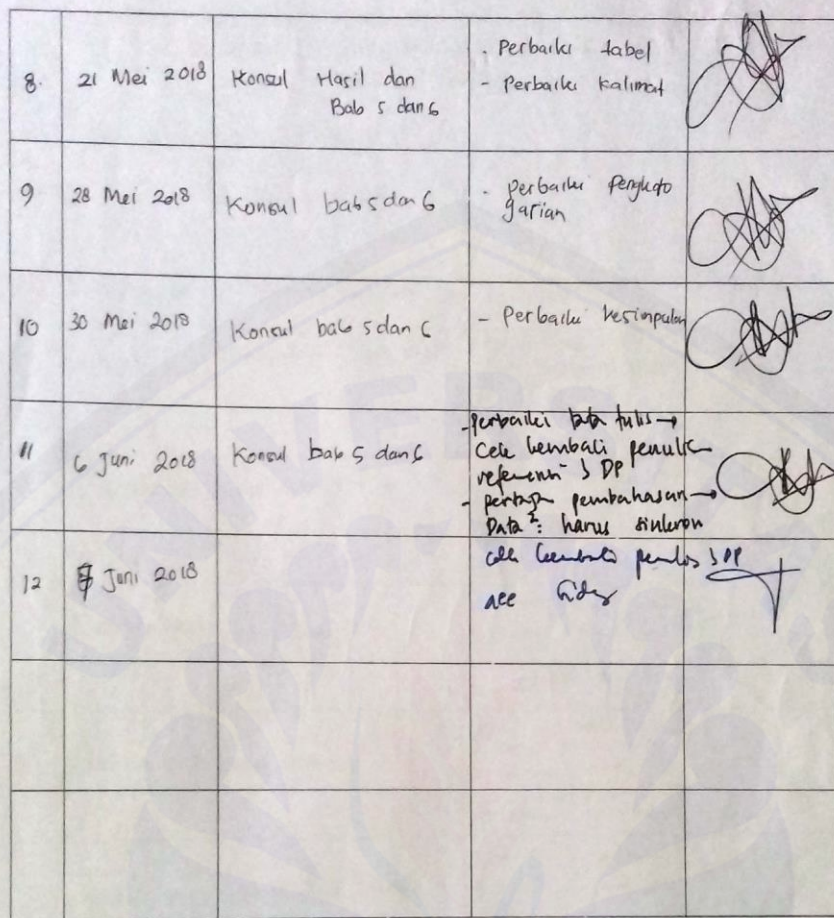 8. 21 Mei 2018 Konsul Hasil dan Bab 5 dan 6
- Perbaiki tabel
- Perbaiki kalimat
9 28 Mei 2018 Konsul bab 5 dan 6
- Perbaiki Pengkato
garian
10 30 Mei 2018 Konsul bab 5 dan 6 - Perbaiki kesimpulan
11 6 Juni 2018 Konsul bab 5 dan 6
- perbaiki tata tulis →
Cek kembali penulis
referensi DP
- pembahasan →
Data²: harus sinkron
12 7 Juni 2018
cek kembali DP
acc
UNIVERS